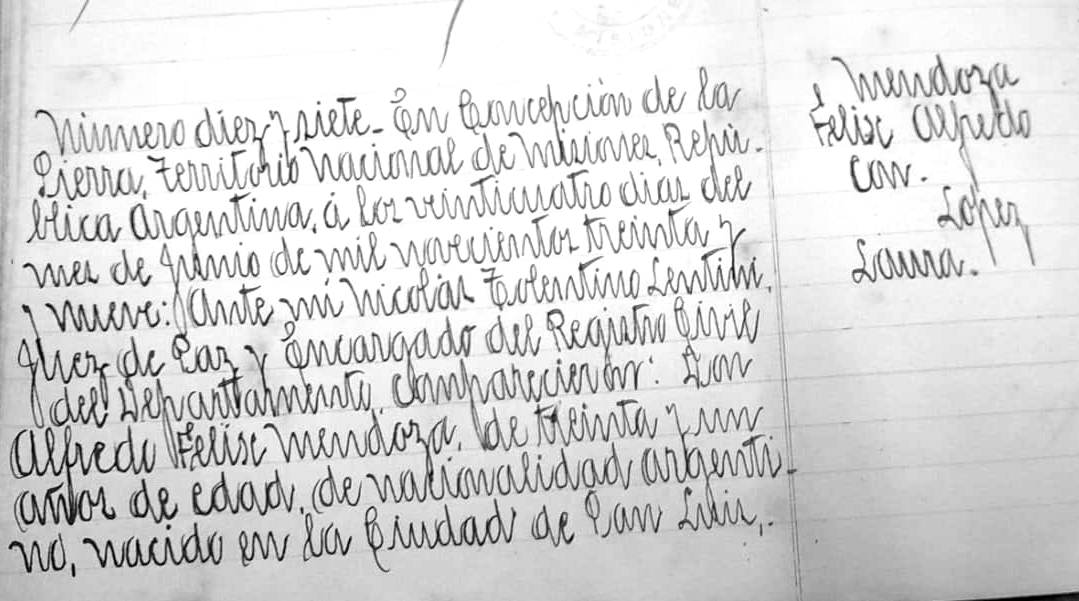 Número diez y siete- En Concepción de la
Sierra, Territorio Nacional de Misiones, Repú-
blica Argentina, á los veinticuatro dias del
mes de Junio de mil novecientos treinta y
nueve: Ante mi Nicolás Tolentino Sentini,
Juez de Paz y Encargado del Registro Civil
del Departamento, Comparecieron: Don
Alfredo Felise Mendoza, de treinta y un
años de edad, de nacionalidad argenti-
no, nacido en la Ciudad de San Luis,.
Mendoza
Felise Alfredo
Con.
López
Laura.